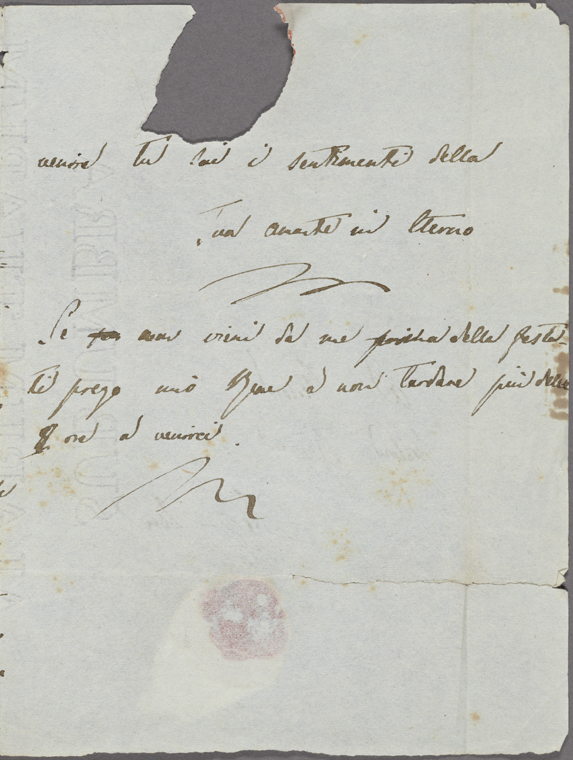 venire tu sai i sentimenti della
Tua amante in Eterno
Se non vieni da me prima della festa
ti prego mio Bene a non tardare più delle
8 ore a venirci.